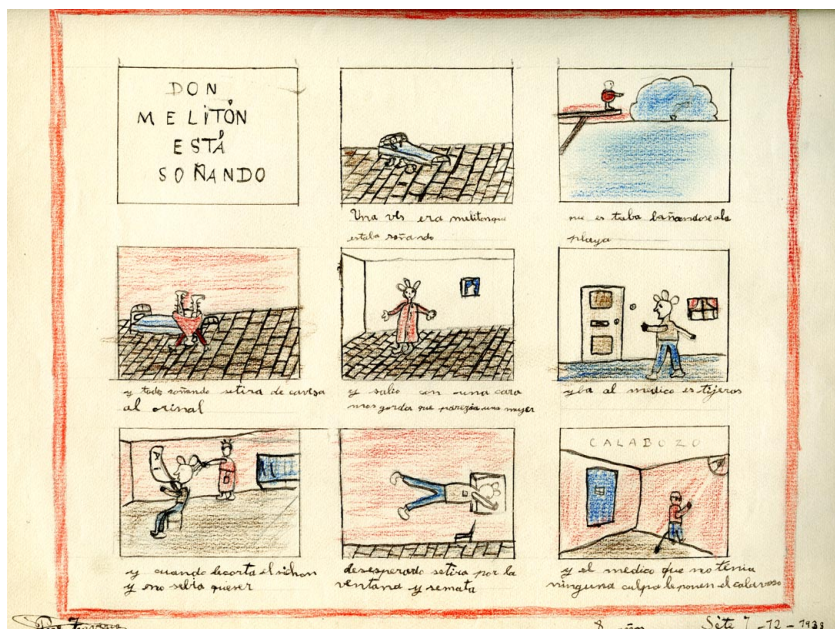 DON
MELITÓN
ESTÁ
SOÑANDO
Una vés era meliton que
estaba soñando
que estaba bañandose ala
playa
y todo soñando setira de caveza
al orinal
y salio con una cara
mas gorda que parezia una mujer
y ba al médico es tijeros
CALABOZO
y cuando le corta el
y no
desesperado setira por la
ventana y semata
y el medico que no tenia
ninguna culpa le ponen el calavoso
8 años
Séte 7-12-1938